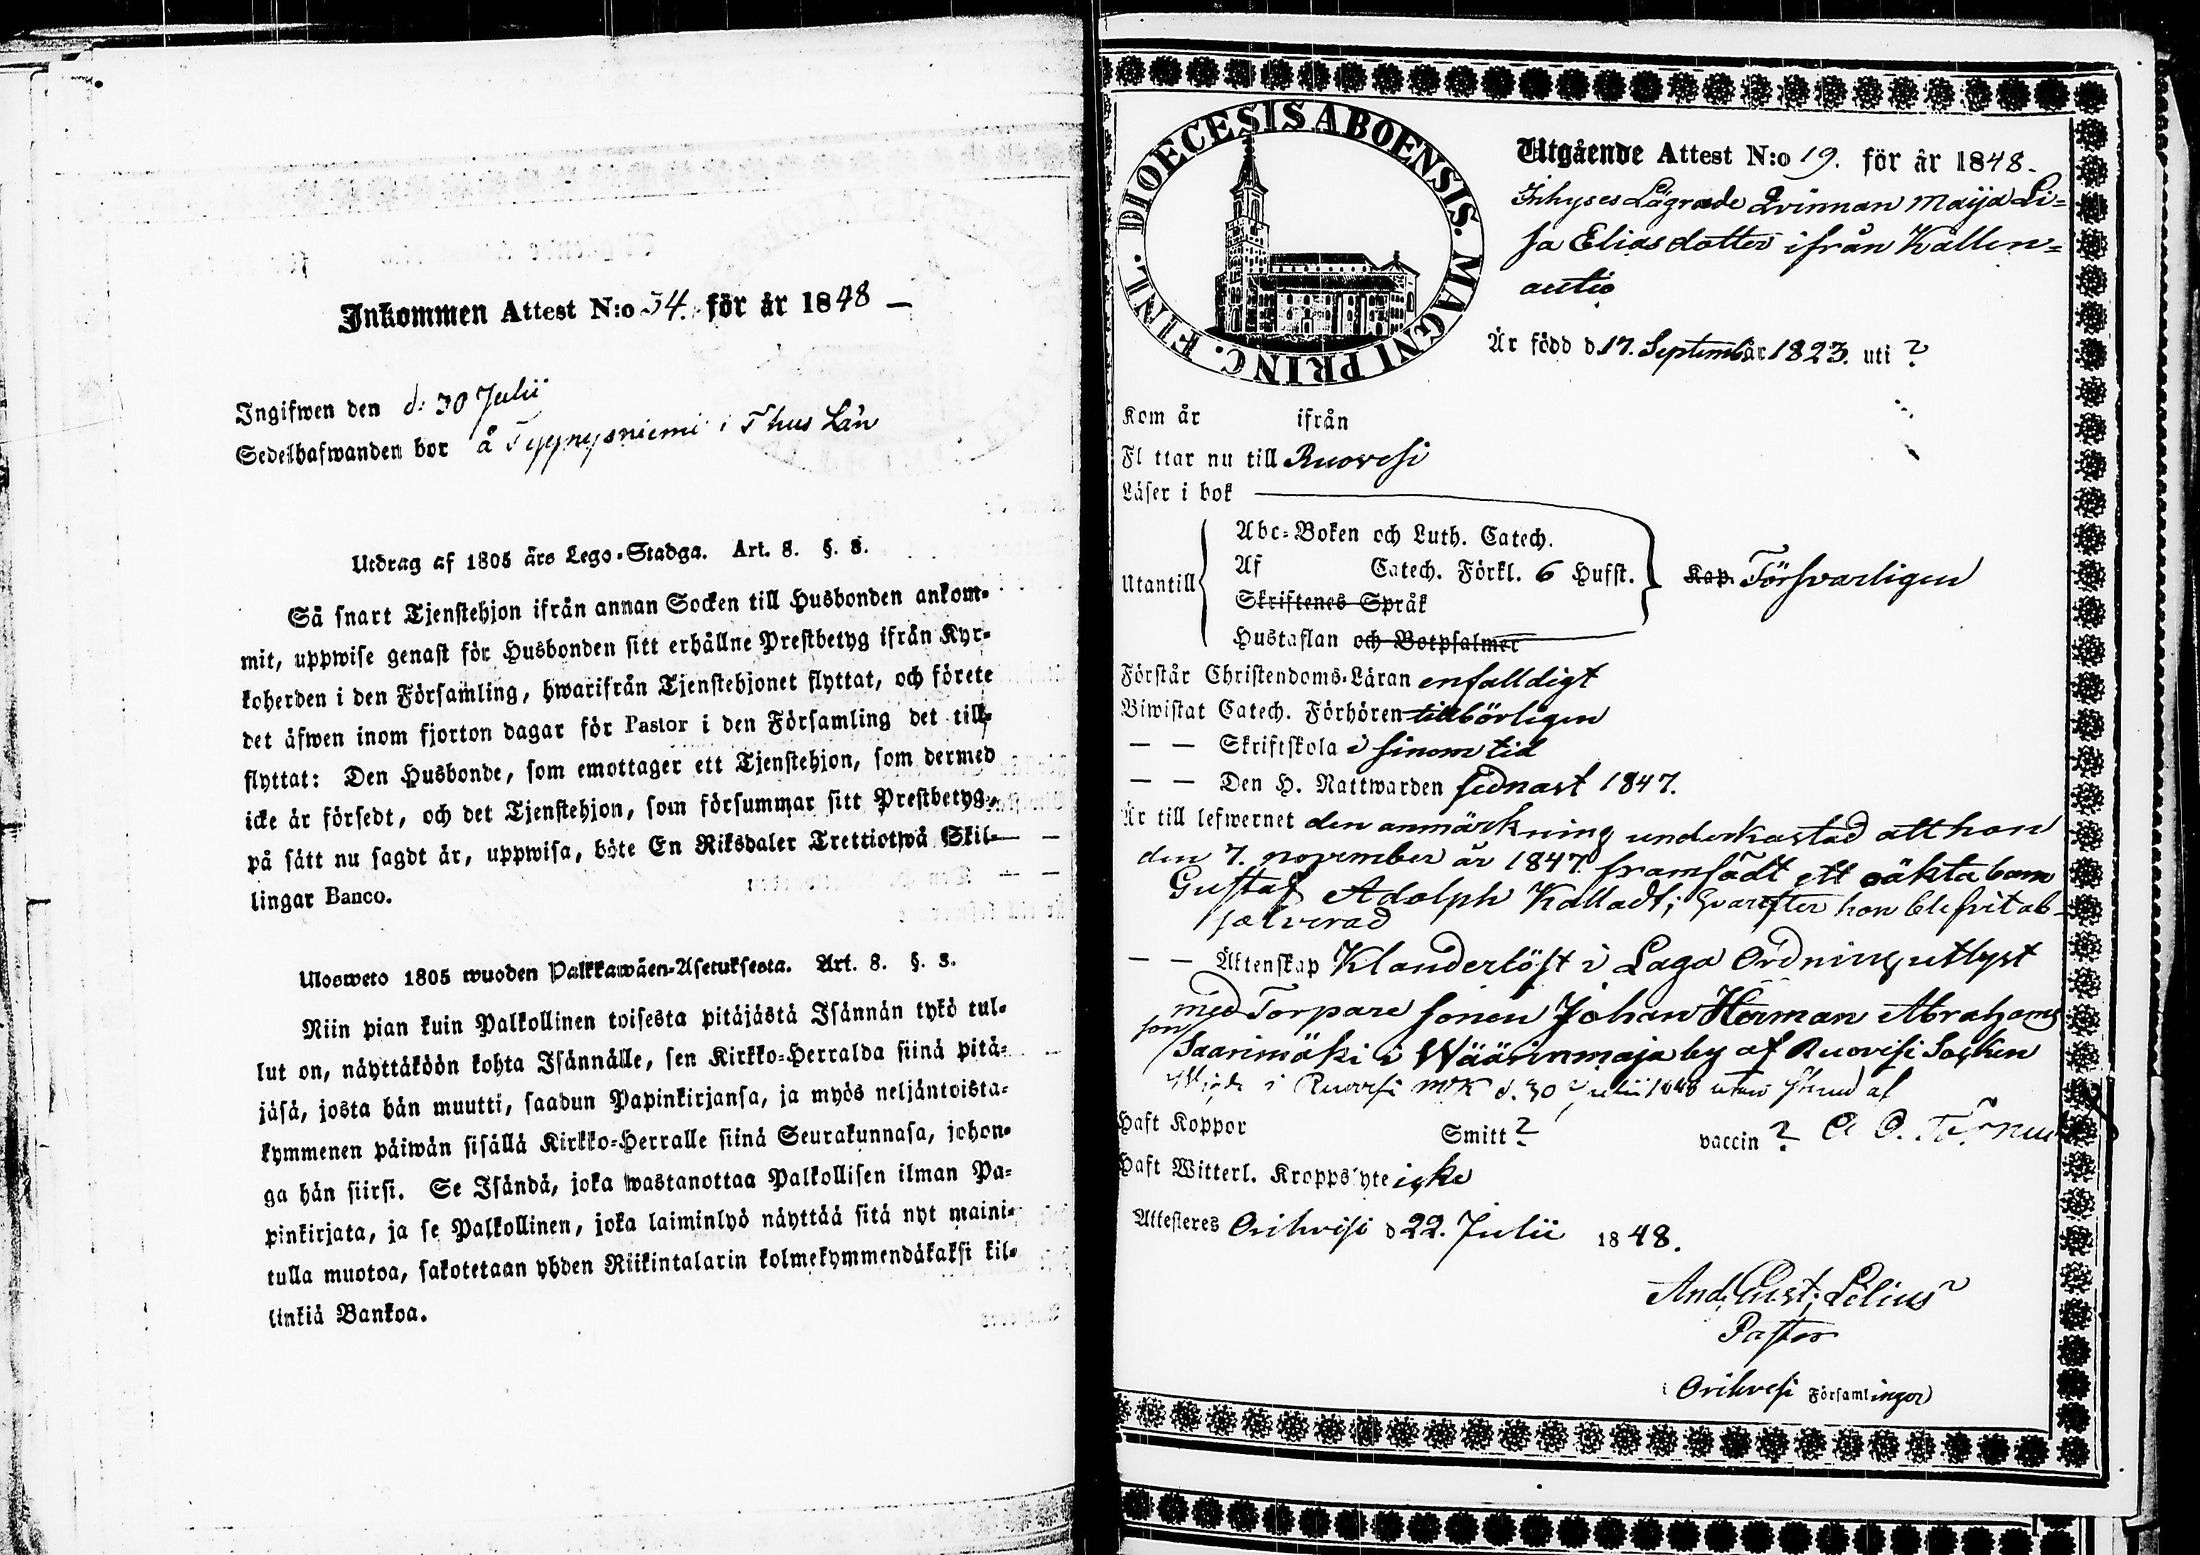 Inkommen Attest N:o 34. för år 1848 —
Ingifwen den d: 30 Julii
Sedelhafwanden bor å Tyynysniemi i Thus Län
Utdrag af 1805 års Lego-Stadga. Art. 8. §. 3.
Så snart Tjenstehjon ifrån annan Socken till Husbonden ankom-
mit, uppwise genast för Husbonden sitt erhållne Prestbetyg ifrån Kyr-
koherden i den Församling, hwarifrån Tjenstehjonet flyttat, och förete
det äfwen inom fjorton dagar för Pastor i den Församling det till-
flyttat: Den Husbonde, som emottager ett Tjenstehjon, som dermed
icke är försedt, och det Tjenstehjon, som försummar sitt Prestbetyg,
på sätt nu sagdt är, uppwisa, böte En Riksdaler Trettiotwå Skil-
lingar Banco.
Ulosweto 1805 wuoden Palkkawäen-Asetuksesta. Art. 8. §. 3.
Niin pian kuin Palkollinen toisesta pitäjästä Isännän tykö tul-
lut on, näyttäköön kohta Isännälle, sen Kirkko-Herralda siinä pitä-
jäsä, josta hän muutti, saadun Papinkirjansa, ja myös neljäntoista-
kymmenen päiwän sisällä Kirkko-Herralle siinä Seurakunnasa, johon-
ga hän siirsi. Se Isändä, joka wastanottaa Palkollisen ilman Pa-
pinkirjata, ja se Palkollinen, joka laiminlyö näyttää sitä nyt maini-
tulla muotoa, sakotetaan yhden Riikintalarin kolmekymmendäkaksi kil-
linkiä Bankoa.
DIOECESIS ABOENSIS. MAGNI PRINC. FINL.
Utgående Attest N:o 19. för år 1848.
Inhyses Lägrade Qvinnan Maija Li=
sa Eliasdotter ifrån Kallen=
autio
Är född d 17. September 1823. uti ?
Kom år ifrån
Fl ttar nu till Ruovesi
Läser i bok
Utantill
Abc-Boken och Luth. Catech.
Af Catech. Förkl. 6 Hufst.
Skriftenes Språk
Hustaflan och Botpsalmer
Kap. Försvarligen
Förstår Christendoms-Läran enfalldigt
Biwistat Catech. Förhören tillbörligen
— — Skriftskola i sinom tid
— — Den H. Nattwarden sednast 1847.
Är till lefwernet den anmärkning underkastad att hon
den 7. november år 1847. framfödt ett oäkta barn
Gustaf Adolph Kalladt; hvarefter hon blefvit ab-
solverad
— — Äktenskap Klanderlöst i Laga Ordning utlyst
med Torpare sonen Johan Herman Abrahams
son Saarimäki i Wäärinmaja by af Ruovesi Socken
Wigde i Ruovesi MK d. 30 Julii 1848 utan skrud af
Haft Koppor Smitt ? vaccin ?
Haft Witterl. Kroppslyte icke
Attesteres Orihvesi d 22. Julii 1848.
And. Gust. Lilius
Pastor
i Orihvesi Församlingar